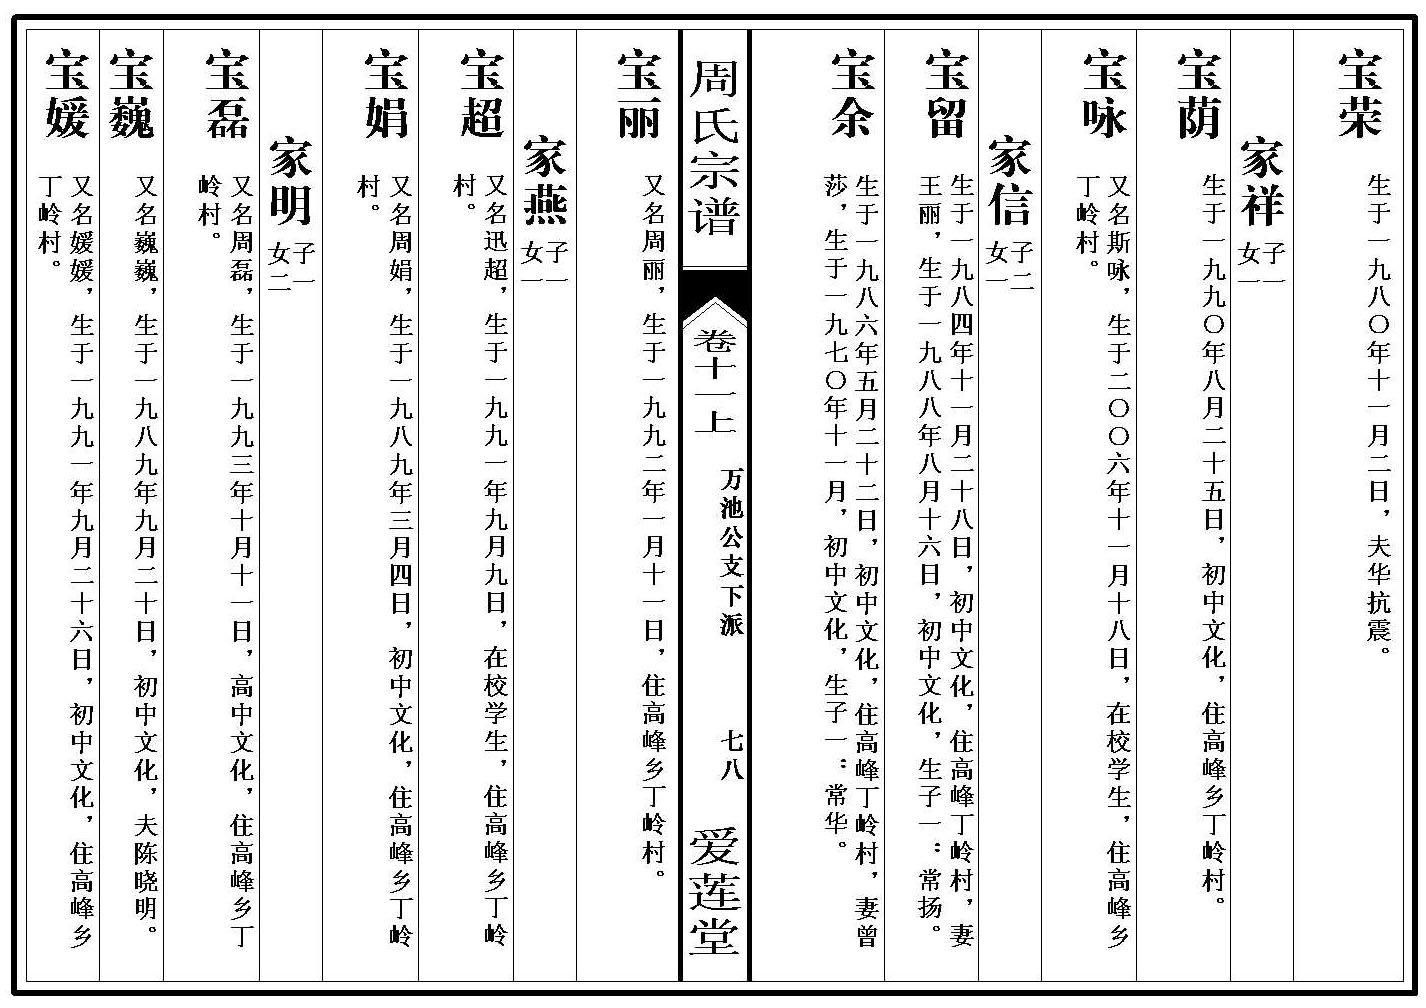 宝荣
生于一九八〇年十一月二日，夫华抗震。
家祥
子一
女一
宝荫
生于一九九〇年八月二十五日，初中文化，住高峰乡丁岭村。
宝咏
又名斯咏，生于二〇〇六年十一月十八日，在校学生，住高峰乡
丁岭村。
家信
子二
女一
宝留
生于一九八四年十一月二十八日，初中文化，住高峰丁岭村，妻
王丽，生于一九八八年八月十六日，初中文化，生子一：常扬。
宝余
生于一九八六年五月二十二日，初中文化，住高峰丁岭村，妻曾
莎，生于一九七〇年十一月，初中文化，生子一：常华。
周氏宗谱
卷十一上
万池公支下派
七八
爱莲堂
宝丽
又名周丽，生于一九九二年一月十一日，住高峰乡丁岭村。
家燕
子一
女一
宝超
又名迅超，生于一九九一年九月九日，在校学生，住高峰乡丁岭
村。
宝娟
又名周娟，生于一九八九年三月四日，初中文化，住高峰乡丁岭
村。
家明
子一
女二
宝磊
又名周磊，生于一九九三年十月十一日，高中文化，住高峰乡丁
岭村。
宝巍
又名巍巍，生于一九八九年九月二十日，初中文化，夫陈晓明。
宝媛
又名媛媛，生于一九九一年九月二十六日，初中文化，住高峰乡
丁岭村。